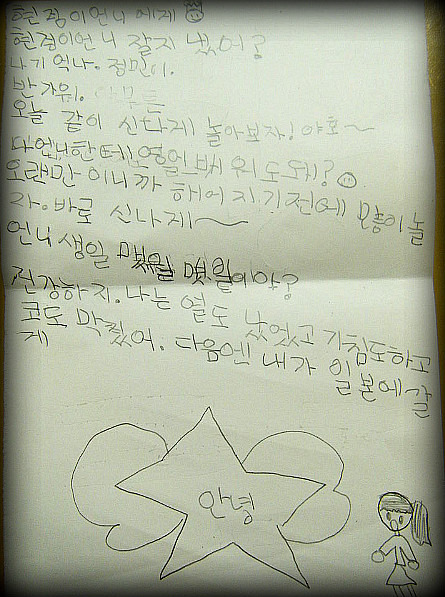 현정이언니에게
현정이언니 잘지냈어?
나기억나. 정민이.
반가워. 아무튼
오늘 같이 신나게 놀아보자! 야호~
나언니한테 영어 배워도돼?
오랜만이니까 헤어지기전에 많이놀
자. 바로 신나게~
언니생일 몇월이야?
건강하지. 나는 열도 났었고 기침도하고
코도 막혔어. 다음엔 내가 일본에갈
게
안녕